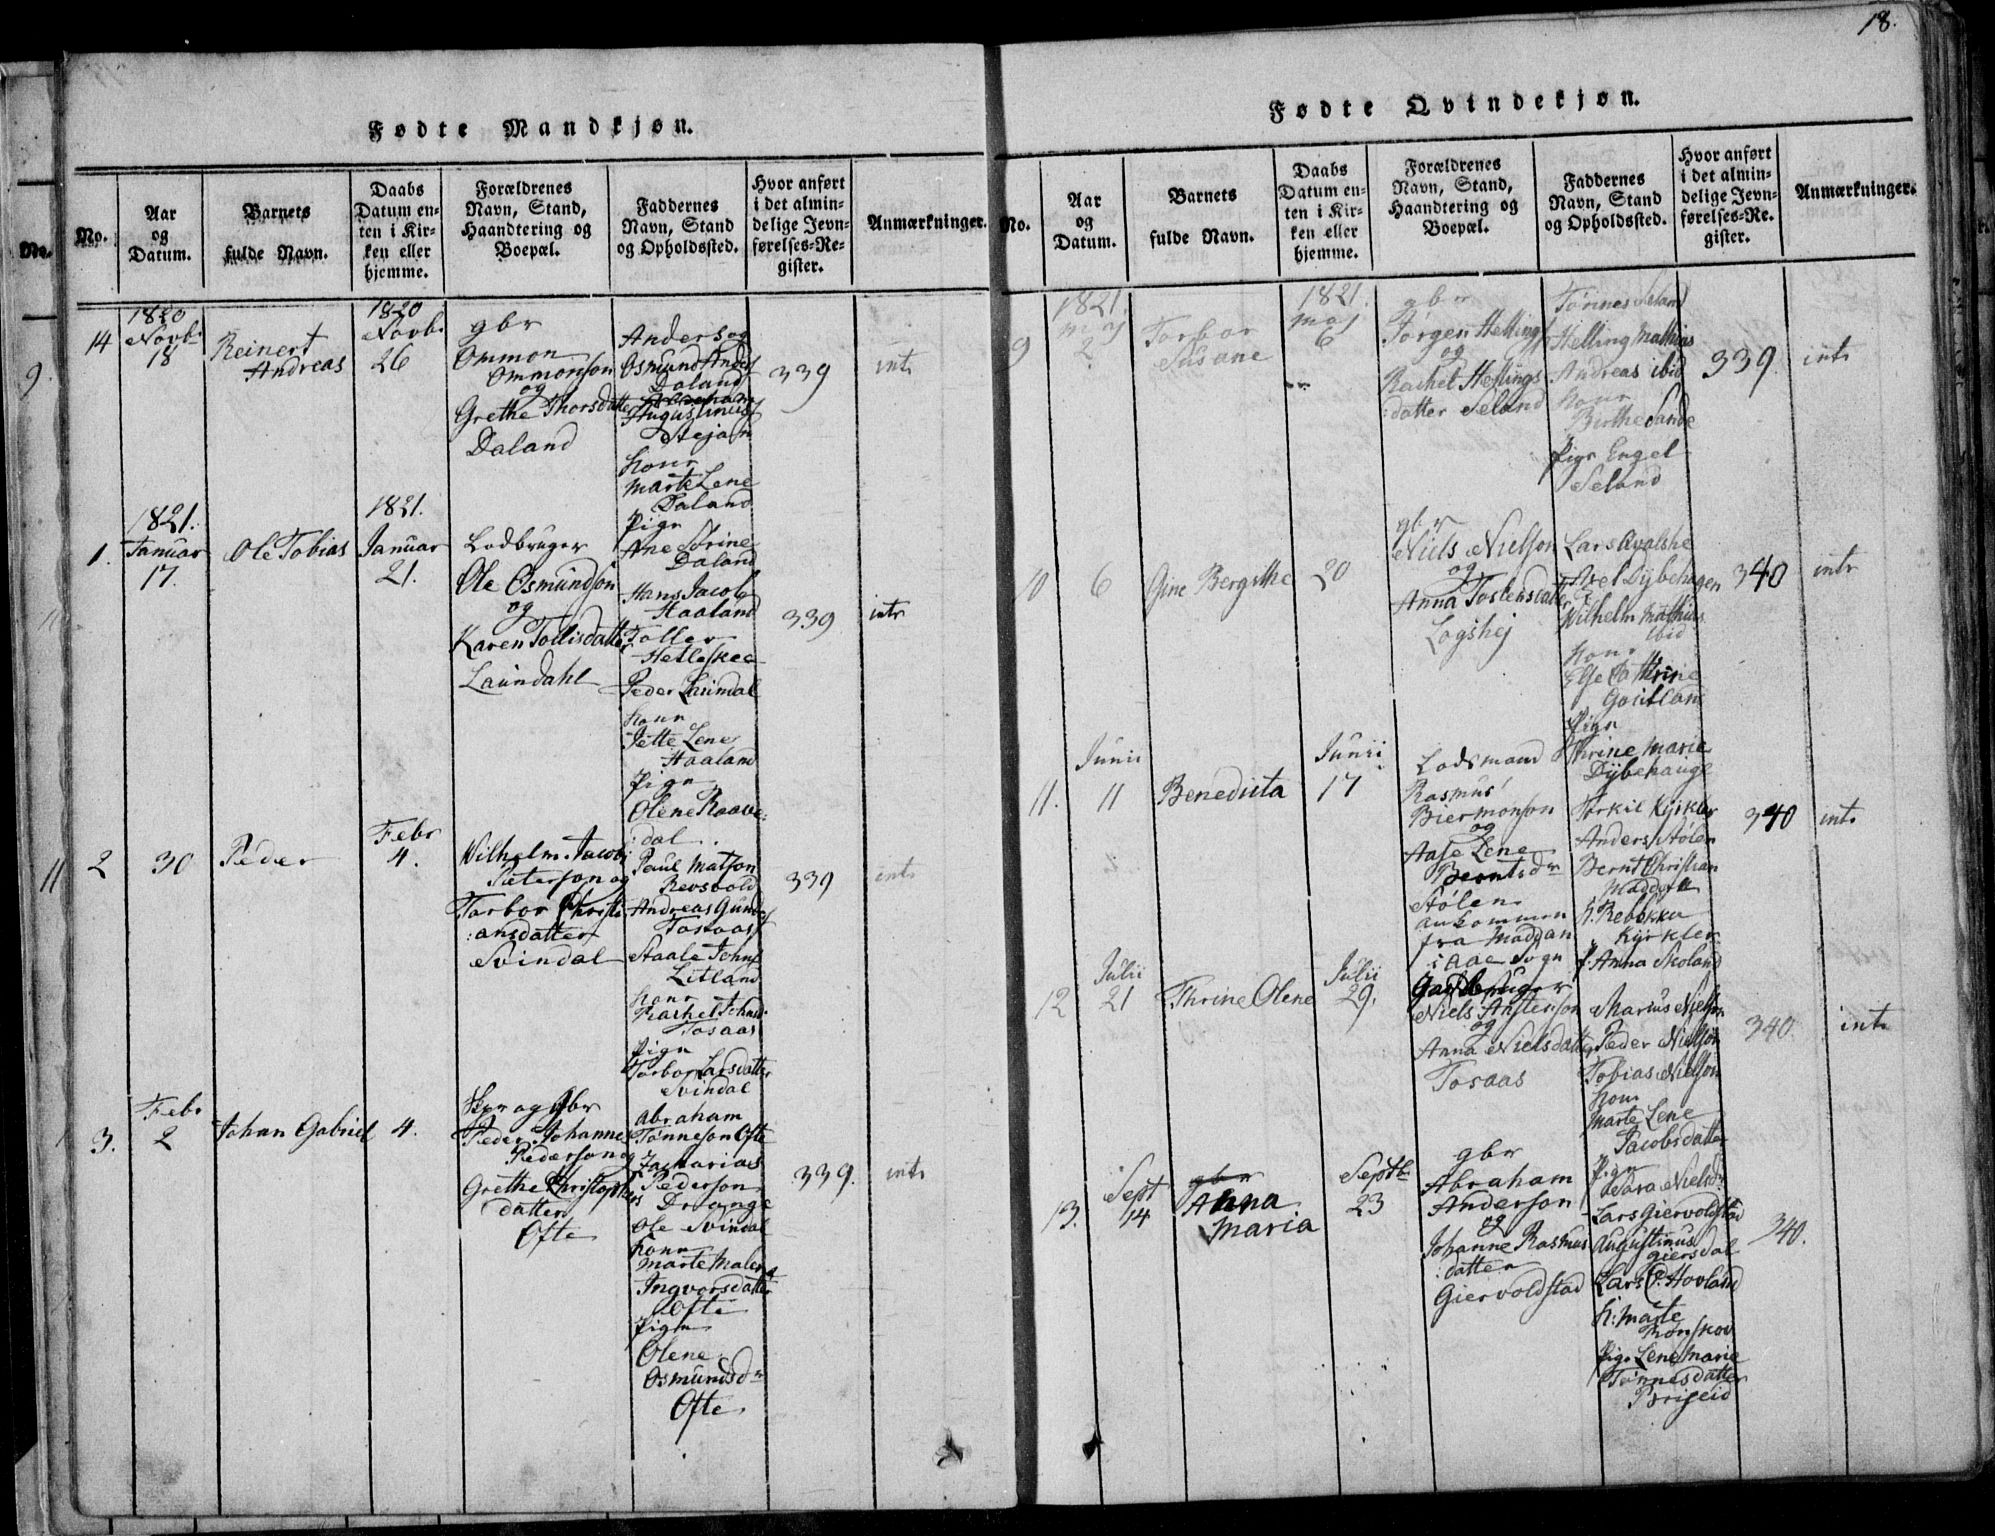 18.
Fødte Mandkjøn.
No.
Aar
og
Datum.
Barnets
fulde Navn.
Daabs
Datum en-
ten i Kir-
ken eller
hjemme.
Forældrenes
Navn, Stand,
Haandtering og
Boepæl.
Faddernes
Navn, Stand
og Opholdssted.
Hvor anført
i det almin-
delige Jevn-
førelses-Re-
gister.
Anmærkninger.
14
1820
Novb.
18
Reinert
Andreas
1820
Novb.
26
gbr
Ommon
Ommonson
og
Grethe Thorsdatter
Daland
Anders og
Osmund Anders
Daland
Augustinus
Stejan
Konr
Marte Lene
Daland
Pign
Ane Serine
Daland
339
intr
1.
1821.
Januar
17.
Ole Tobias
1821.
Januar
21.
Lodbruger
Ole Osmundson
og
Karen Tollisdatter
Laundahl
Hans Jacob
Haaland
Toller
Hetleskee
Peder Laundal
Konr
Jette Lene
Haaland
Pign
Olene Raave:
:dal
339
intr
2
30
Peder
Febr
4.
Wilhelm Jacob
Peterson og
Torbor Christi
:ansdatter
Svindal
Paul Matson
Revsvold
Andreas Gunds
Tosaas
Staale Johns
Litland
Konr
Rachel Johans
Tosaas
Pign
Torbor Larsdatter
Svindal
339
intr
3.
Febr
2
Johan Gabriel
4.
Skpr og Gbr
Peder Johannes
Pederson og
Grethe Christophers
datter
Ofte
Abraham
Tönneson Ofte
Zacharias
Pederson
Drange
Ole Svindal
Konr
Marte Malena
Ingvorsdatter
Ofte
Pign
Olene
Osmundsdr
Ofte
339.
intr
Fødte Qvindekjøn.
No.
Aar
og
Datum.
Barnets
fulde Navn.
Daabs
Datum en-
ten i Kir-
ken eller
hjemme.
Forældrenes
Navn, Stand,
Haandtering og
Boepæl.
Faddernes
Navn, Stand
og Opholdssted.
Hvor anført
i det almin-
delige Jevn-
førelses-Re-
gister.
Anmærkninger.
9
1821.
Maj
2
Torbor
Susane
1821.
Maj
6
gbr
Jørgen Hellings
og
Rachel Hellings
:datter Seland
Tönnes Seland
Helling Mathias
Andreas ibid
Konr
Birthe Sande
Pign Engel
Seland
339
intr
10
6
Gine Bergithe
20
gbr
Niels Nielson
og
Anna Tostensdatter
Logshej
Lars Qvalshe
Axel Dybehugen
Wilhelm Mathias
ibid
Konr
Else Cathrine
Pign
Thrine Marie
Dybehauge
340
intr
11.
Junii
11
Benedicta
Junii
17
Lodsmand
Rasmus
Biermonson
og
Aase Lene
Berntsdr
Stölen
ankommen
fra Maddan
i Aae Sogn
Torkil Kyrkler
Anders Stölen
Bernt Christian
K. Rebekka
Kyrkler
P. Anna Skoland
340
intr
12
Julii
21
Thrine Olene
Julii
29.
Gaardbruger
Niels Anstenson
og
Anna Nielsdatter
Tosaas
Marcus Nielson
Peder Nielson
Tobias Nielson
Kon
Marte Lene
Jacobsdatter
Pign
Sara Nielsdr
340.
intr
13.
Sept
14
gbr
Anna
Maria
Septbr
23
gbr
Abraham
Anderson
og
Johanne Rasmus
:datter
Giervoldstad
Lars Giervoldstad
Augustinus
Giersdal
Lars O. Hovland
K: Marte
Rönskov
Pige Lene Marie
Tönnesdatter
Briseid
340.